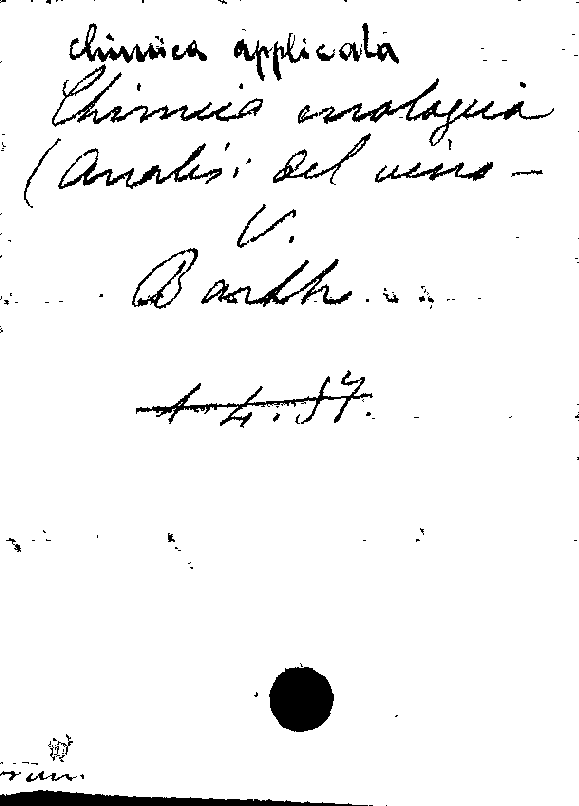 chimica applicata
Chimica enologica
(Analisi del vino —
V.
Barth.
1 4.57.